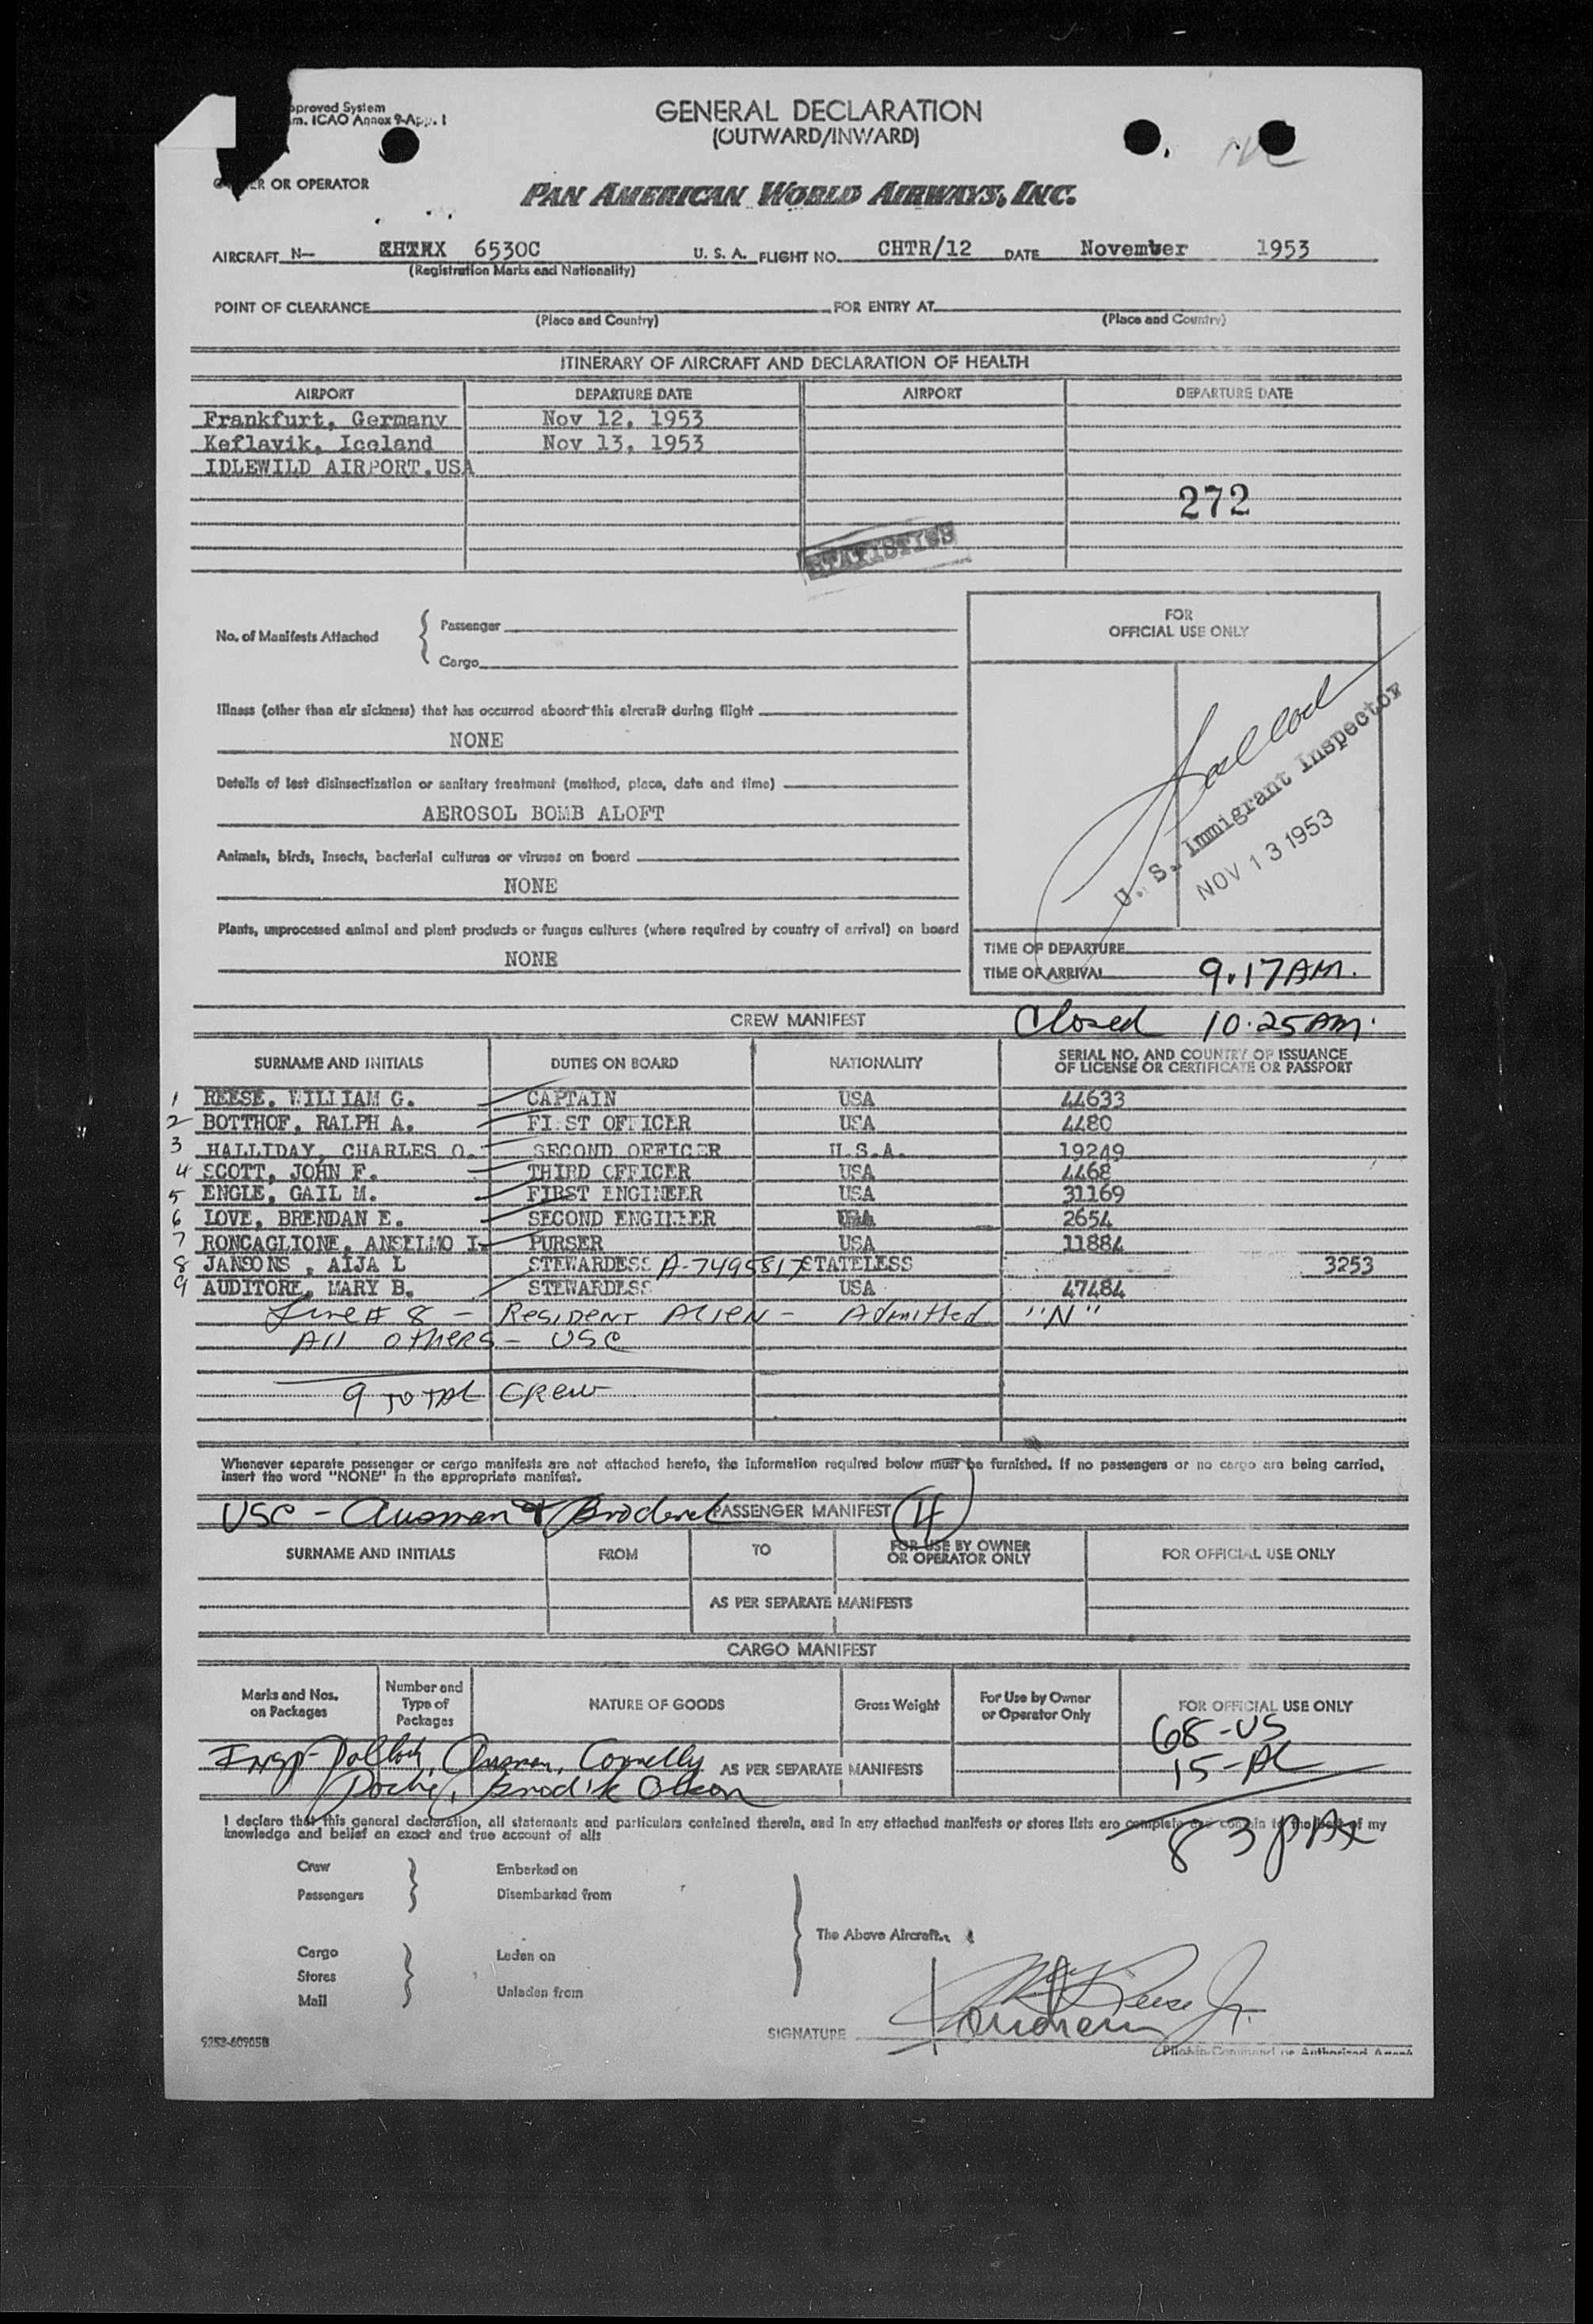 pproved System
m. ICAO Annex 9-App. 1
GENERAL DECLARATION
(OUTWARD/INWARD)
ER OR OPERATOR
PAN AMERICAN WORLD AIRWAYS, INC.
AIRCRAFT N— 6530C U. S. A. FLIGHT NO. CHTR/12 DATE November 1953
(Registration Marks and Nationality)
POINT OF CLEARANCE FOR ENTRY AT
(Place and Country) (Place and Country)
ITINERARY OF AIRCRAFT AND DECLARATION OF HEALTH
AIRPORT DEPARTURE DATE AIRPORT DEPARTURE DATE
Frankfurt, Germany Nov 12, 1953
Keflavik, Iceland Nov 13, 1953
IDLEWILD AIRPORT.USA
272
STATISTICS
No. of Manifests Attached { Passenger
Cargo
FOR
OFFICIAL USE ONLY
Illness (other than air sickness) that has occurred aboard this aircraft during flight
NONE
Details of last disinsectization or sanitary treatment (method, place, date and time)
AEROSOL BOMB ALOFT
Animals, birds, insects, bacterial cultures or viruses on board
NONE
Plants, unprocessed animal and plant products or fungus cultures (where required by country of arrival) on board
NONE
U. S. Immigrant Inspector
NOV 13 1953
TIME OF DEPARTURE
TIME OF ARRIVAL 9.17AM.
CREW MANIFEST Closed 10:25AM.
SURNAME AND INITIALS DUTIES ON BOARD NATIONALITY SERIAL NO. AND COUNTRY OF ISSUANCE
OF LICENSE OR CERTIFICATE OR PASSPORT
1 REESE, WILLIAM G. CAPTAIN USA 44633
2 BOTTHOF, RALPH A. FI ST OFFICER USA 4480
3 HALLIDAY, CHARLES O. SECOND OFFICER U.S.A. 19249
4 SCOTT, JOHN F. THIRD OFFICER USA 4468
5 ENGLE, GAIL M. FIRST ENGINEER USA 31169
6 LOVE, BRENDAN E. SECOND ENGINEER USA 2654
7 RONCAGLIONE, ANSELMO I. PURSER USA 11884
8 JANSONS , AIJA L STEWARDESS A-7495817 STATELESS 3253
9 AUDITORE, MARY B. STEWARDESS USA 47484
Line # 8 — Resident Alien — Admitted "N"
All others — USC
9 TOTAL CREW
Whenever separate passenger or cargo manifests are not attached hereto, the information required below must be furnished. If no passengers or no cargo are being carried,
insert the word "NONE" in the appropriate manifest.
USC - Ausman & PASSENGER MANIFEST
SURNAME AND INITIALS FROM TO FOR USE BY OWNER
OR OPERATOR ONLY FOR OFFICIAL USE ONLY
AS PER SEPARATE MANIFESTS
CARGO MANIFEST
Marks and Nos.
on Packages
Number and
Type of
Packages
NATURE OF GOODS Gross Weight
For Use by Owner
or Operator Only
FOR OFFICIAL USE ONLY
68-US
Insp- Pollock, Ausman, Connelly AS PER SEPARATE MANIFESTS 15-AL
Olson
I declare that this general declaration, all statements and particulars contained therein, and in any attached manifests or stores lists are complete and contain to the best of my
knowledge and belief an exact and true account of all:
83 PAX
Crew Embarked on
Passengers Disembarked from
The Above Aircraft.
Cargo Laden on
Stores
Mail Unladen from
SIGNATURE Reese Jr.
Pilot-in-Command or Authorized Agent
9253-60905B